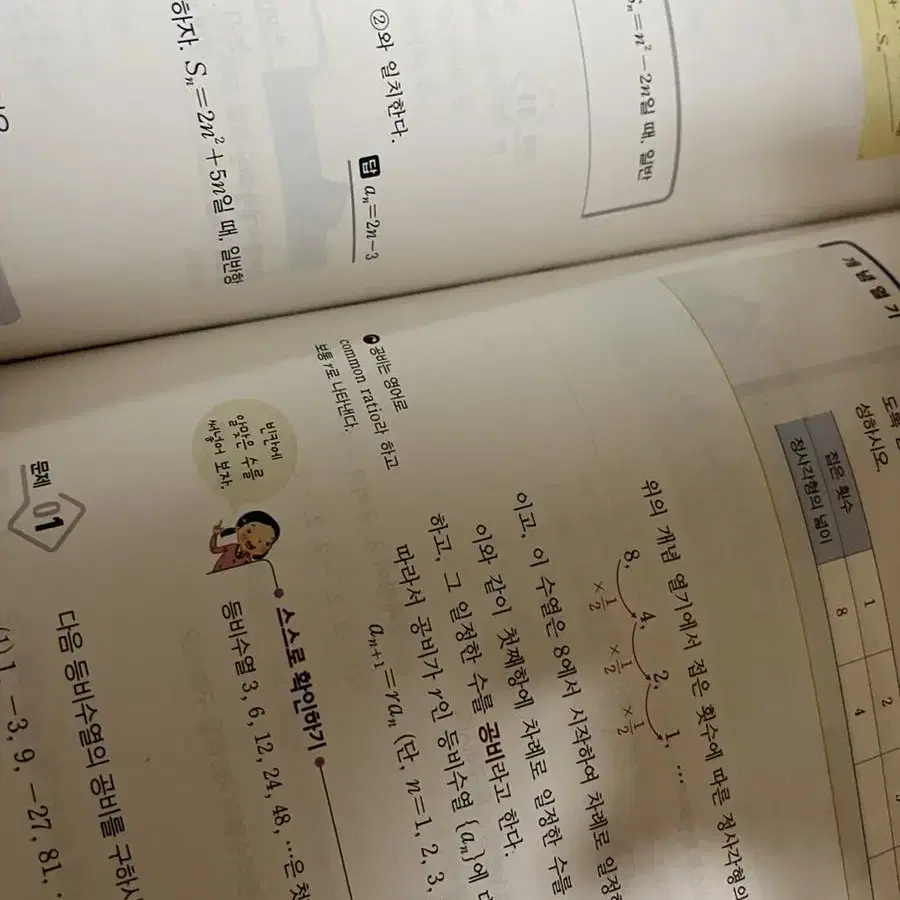 S_n
S_n=n²-2n일 때, 일반
②와 일치한다.
답 a_n=2n-3
하자. S_n=2n²+5n일 때, 일반항
개념 열기
성하시오.
접은 횟수 1 2
정사각형의 넓이 8 4
위의 개념 열기에서 접은 횟수에 따른 정사각형의
8, 4, 2, 1, …
×1/2 ×1/2 ×1/2
이고, 이 수열은 8에서 시작하여 차례로 일정한
이와 같이 첫째항에 차례로 일정한 수를
하고, 그 일정한 수를 공비라고 한다.
따라서 공비가 r인 등비수열 {a_n}에
a_{n+1}=ra_n (단, n=1, 2, 3,
공비는 영어로
common ratio라 하고
보통 r로 나타낸다.
스스로 확인하기
빈칸에
알맞은 수를
써넣어 보자.
등비수열 3, 6, 12, 24, 48, …은 첫
문제 01
다음 등비수열의 공비를 구하시
(1) 1, -3, 9, -27, 81,